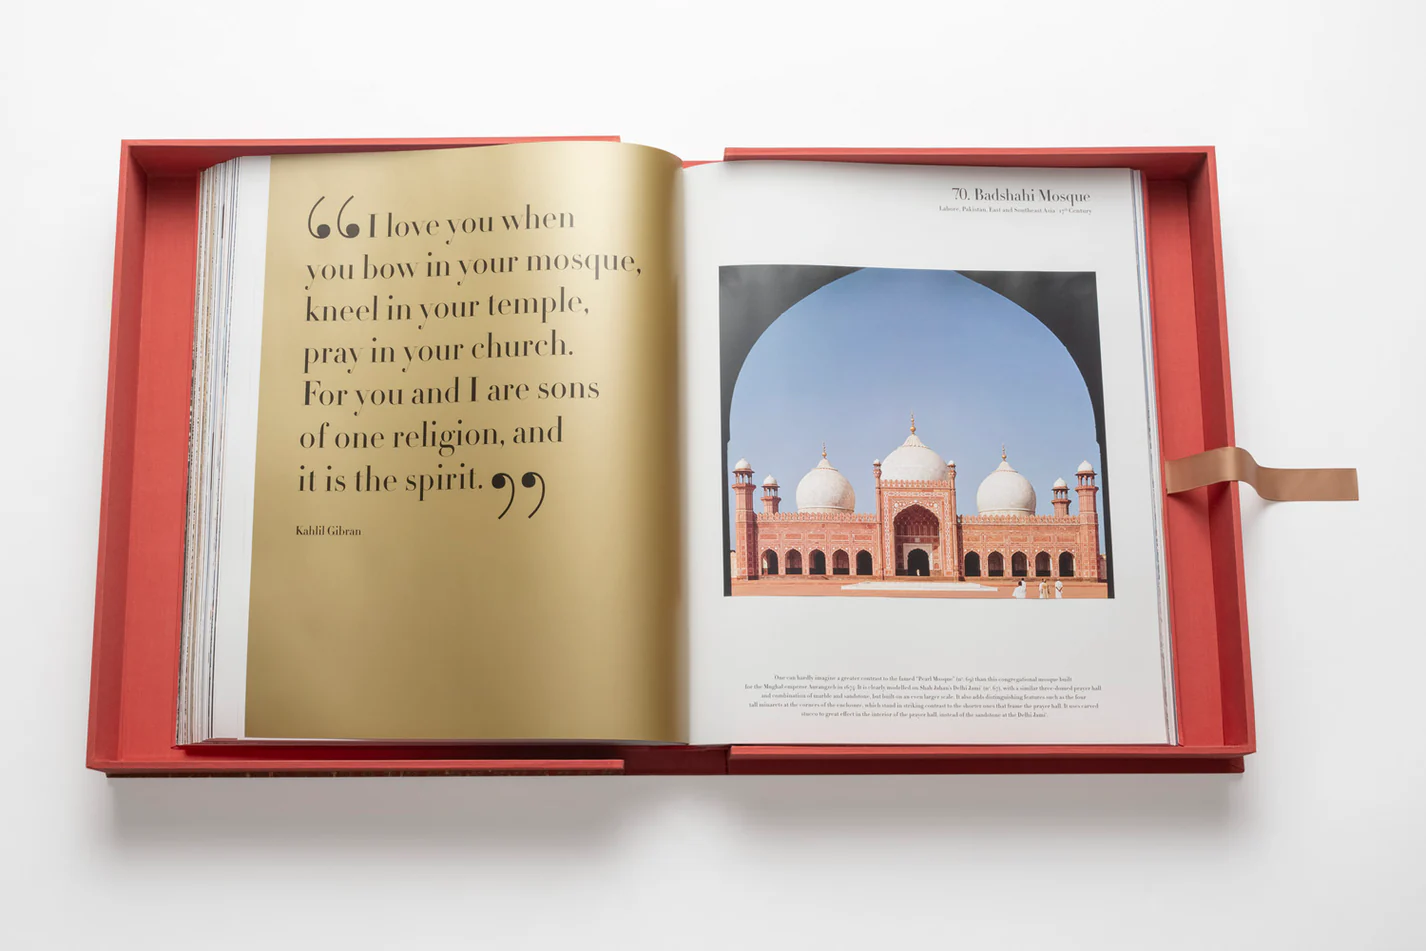 “I love you when
you bow in your mosque,
kneel in your temple,
pray in your church.
For you and I are sons
of one religion, and
it is the spirit.”
Kahlil Gibran
70. Badshahi Mosque
Lahore, Pakistan, East and Southeast Asia 17th Century
One can hardly imagine a greater contrast to the famed "Pearl Mosque" (nº 69) than this congregational mosque built
for the Mughal emperor Aurangzeb in 1673. It is clearly modelled on Shah Jahan's Delhi Jami' (nº 67), with a similar three-domed prayer hall
and combination of marble and sandstone, but built on an even larger scale. It also adds distinguishing features such as the four
tall minarets at the corners of the enclosure, which stand in striking contrast to the shorter ones that frame the prayer hall. It uses carved
stucco to great effect in the interior of the prayer hall, instead of the sandstone at the Delhi Jami'.